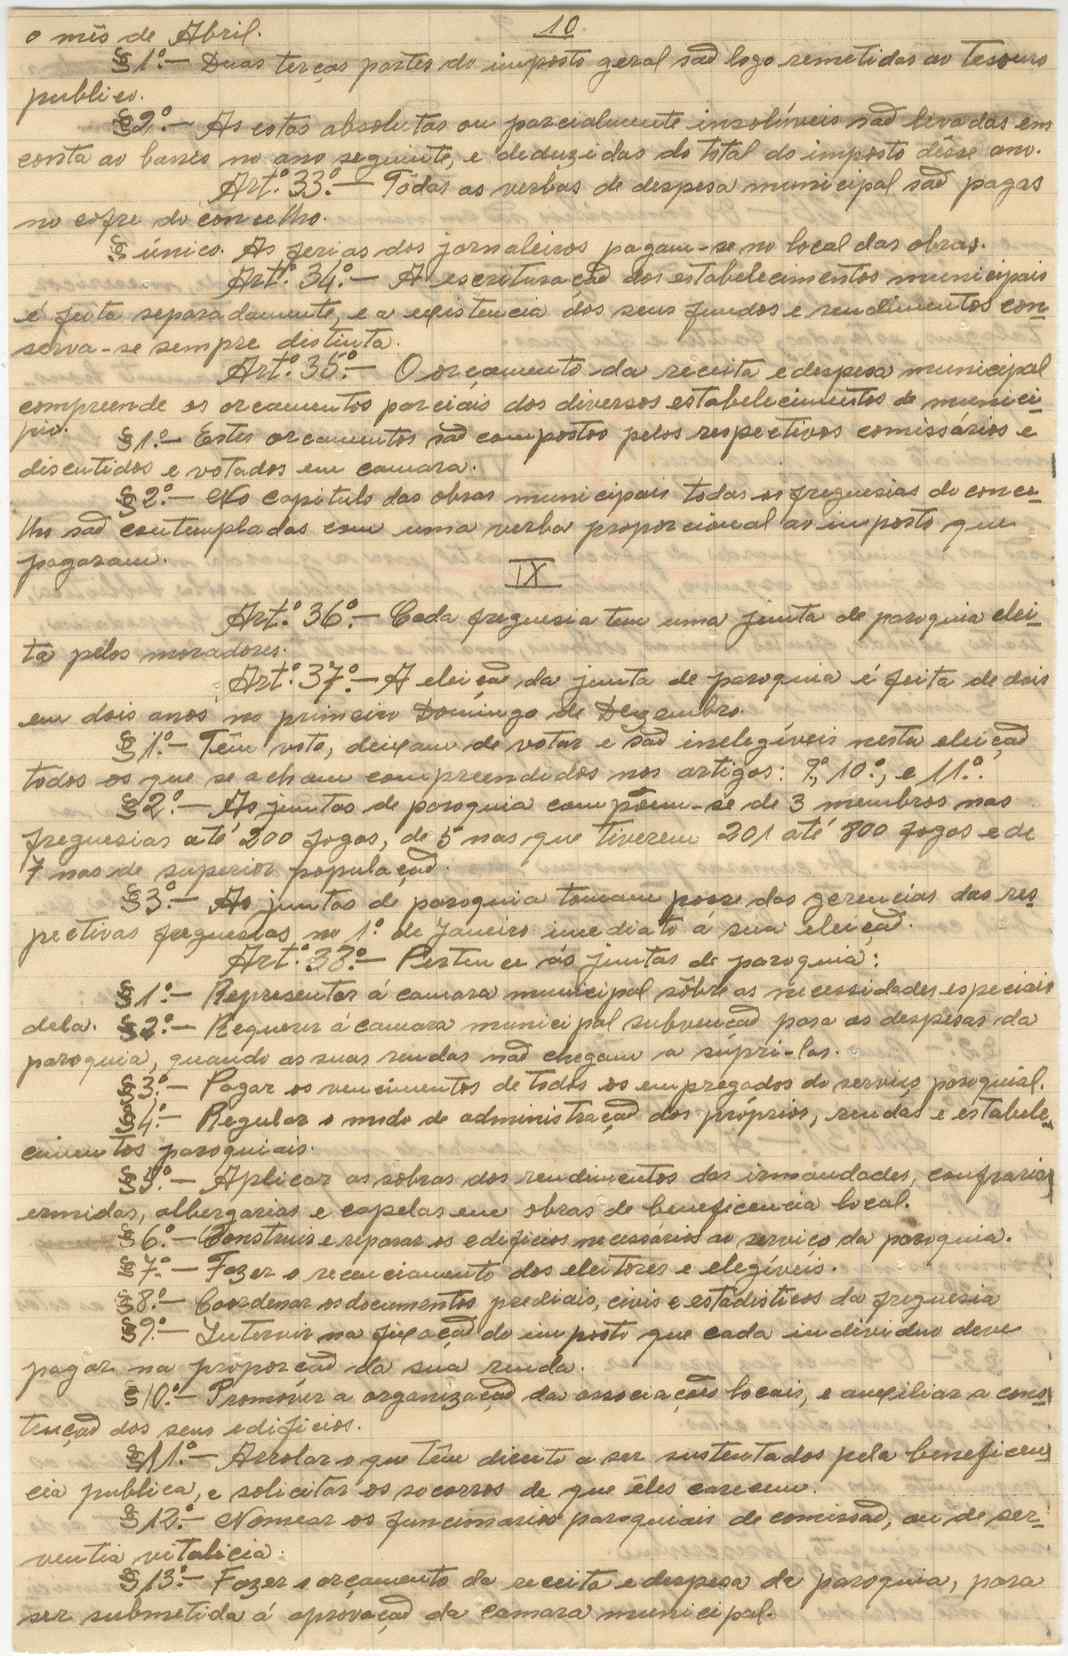 10
o mês de Abril.
§1º.— Duas terças partes do imposto geral são logo remetidas ao tesouro
publico.
§2º.— As cotas absolutas ou parcialmente insolúveis são levadas em
conta ao banco no ano seguinte, e deduzidas do total do imposto dêsse ano.
Artº. 33º.— Todas as verbas de despesa municipal são pagas
no cofre do concelho.
§ único. As ferias dos jornaleiros pagam-se no local das obras.
Artº. 34º.— A escrituração dos estabelecimentos municipais
é feita separadamente, e a existencia dos seus fundos e rendimentos con-
serva-se sempre distinta.
Artº. 35º.— O orçamento da receita e despesa municipal
compreende os orcamentos parciais dos diversos estabelecimentos do municí-
pio.
§1º.— Estes orcamentos são compostos pelos respectivos comissários e
discutidos e votados em camara.
§2º.— No capitulo das obras municipais todas as freguesias do conce-
lho são contempladas com uma verba proporcional ao imposto que
pagaram.
IX
Artº. 36º.— Cada freguesia tem uma junta de paroquia elei-
ta pelos moradores.
Artº. 37º.— A eleição da junta de paroquia é feita de dois
em dois anos no primeiro Domingo de Dezembro.
§1º.— Têm voto, deixam de votar e são inelegíveis nesta eleição
todos os que se acham compreendidos nos artigos: 9º, 10º, e 11º.
§2º.— As juntas de paroquia compõem-se de 3 membros nas
freguesias até 200 fogos, de 5 nas que tiverem 201 até 800 fogos e de
7 nas de superior população.
§3º.— As juntas de paroquia tomam posse das gerencias das res-
pectivas freguesias no 1º. de Janeiro imediato á sua eleição.
Artº. 38º.— Pertence ás juntas de paroquia:
§1º.— Representar á camara municipal sôbre as necessidades especiais
dela. §2º.— Requerer á camara municipal subvenção para as despesas da
paroquia, quando as suas rendas não chegam a supri-las.
§3º.— Pagar os vencimentos de todos os empregados do serviço paroquial.
§4º.— Regular o modo de administração dos próprios, rendas e estabele-
cimentos paroquiais.
§5º.— Aplicar as sobras dos rendimentos das irmandades, confrarias
ermidas, albergarias e capelas em obras de beneficencia local.
§6º.— Construir e reparar os edificios necessários ao servico da paroquia.
§7º.— Fazer o recenciamento dos eleitores e elegíveis.
§8º.— Coordenar os documentos prediais, civis e estádisticos da freguesia
§9º.— Intervir na fixação do imposto que cada individuo deve
pagar na proporção da sua renda.
§10º.— Promover a organização da associações locais, e auxiliar a cons-
trução dos seus edificios.
§11º.— Arrolar o que têm direito a ser sustentados pela beneficen-
cia publica, e solicitar os socorros de que êles carecem.
§12º.— Nomear os funcionarios paroquiais de comissão, ou de ser-
ventia vitalicia.
§13º.— Fazer o orçamento da receita e despesa da paroquia, para
ser submetida á aprovação da camara municipal.